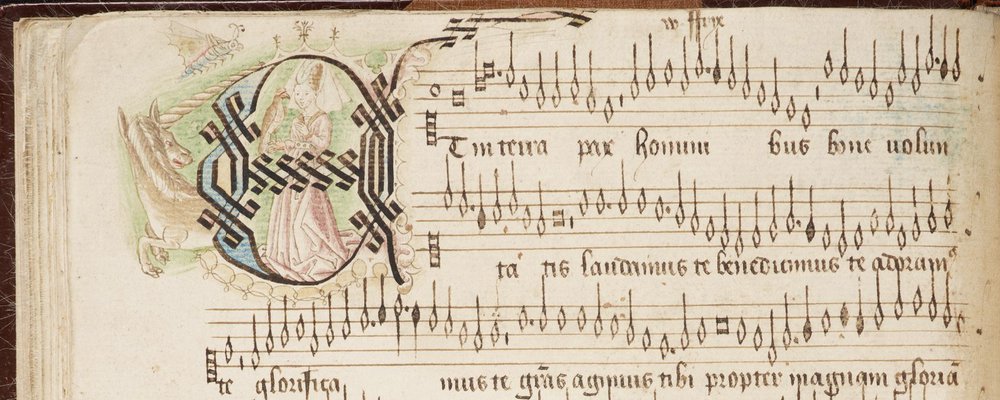 ET in terra pax homini bus bone volun
ta tis laudamus te benedicimus te adoram9
te glorifica mus te grãs agimus tibi propter magnam gloriã